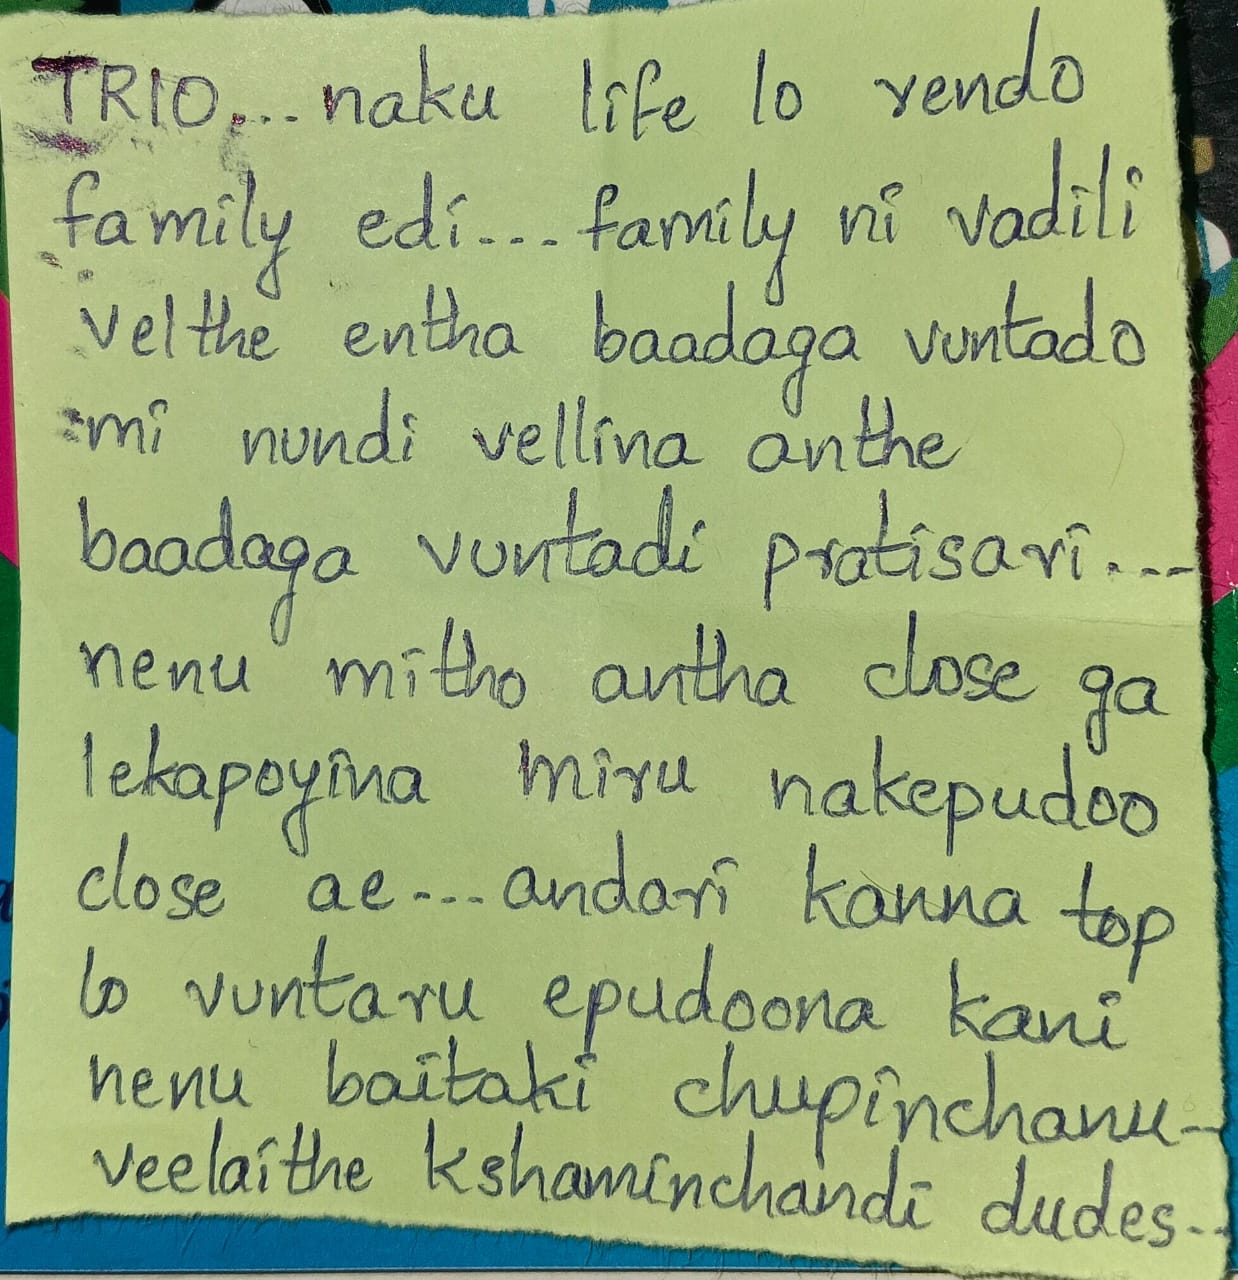 TRIO... naku life lo rendo
family edi... family ni vadili
velthe entha baadaga vuntado
mi nundi vellina anthe
baadaga vuntadi pratisari....
nenu mitho antha close ga
lekapoyina miru nakepudoo
close ae... andari kanna top
lo vuntaru epudoona kani
nenu baitaki chupinchanu_
veelaithe kshaminchandi dudes..